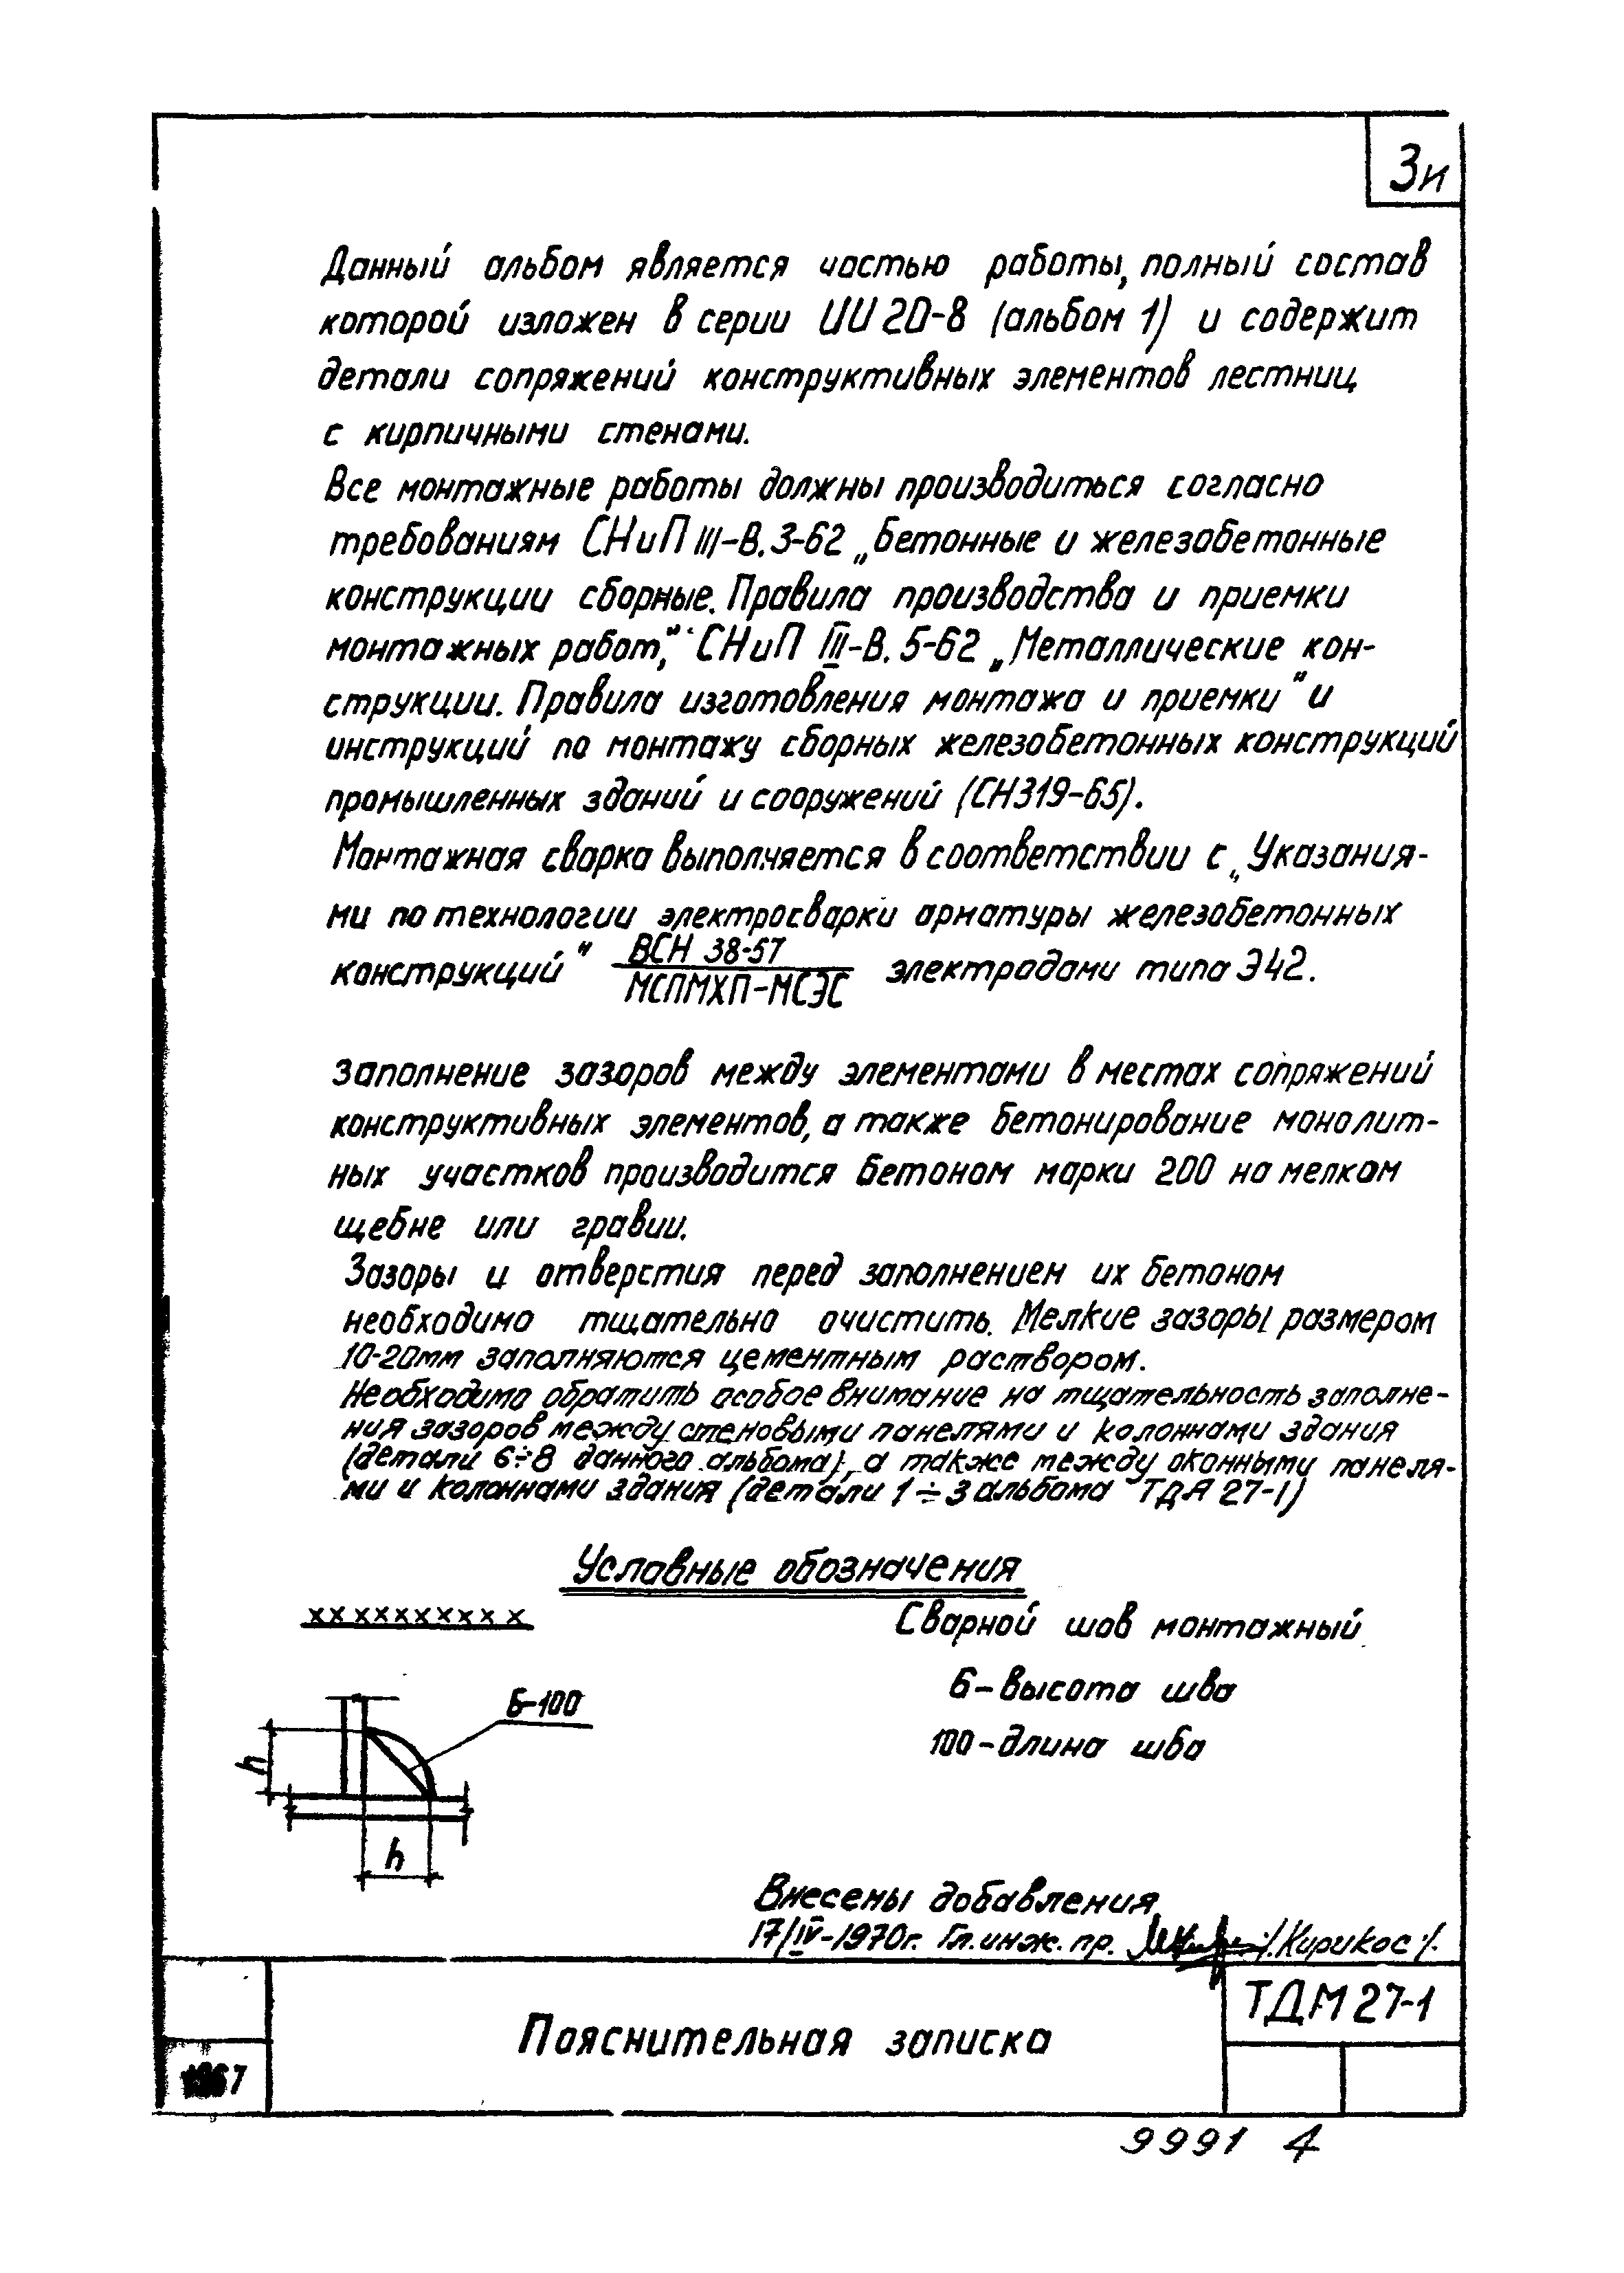 3и
Данный альбом является частью работы, полный состав
которой изложен в серии ИИ 20-8 (альбом 1) и содержит
детали сопряжений конструктивных элементов лестниц
с кирпичными стенами.
Все монтажные работы должны производиться согласно
требованиям СНиП III-В.3-62 „Бетонные и железобетонные
конструкции сборные. Правила производства и приемки
монтажных работ," СНиП III-В.5-62 „Металлические кон-
струкции. Правила изготовления монтажа и приемки" и
инструкций по монтажу сборных железобетонных конструкций
промышленных зданий и сооружений (СН319-65).
Монтажная сварка выполняется в соответствии с „Указания-
ми по технологии электросварки арматуры железобетонных
конструкций" ВСН 38-57 / МСПМХП-МСЭС электродами типа Э42.
Заполнение зазоров между элементами в местах сопряжений
конструктивных элементов, а также бетонирование монолит-
ных участков производится бетоном марки 200 на мелком
щебне или гравии.
Зазоры и отверстия перед заполнением их бетоном
необходимо тщательно очистить. Мелкие зазоры размером
10-20мм заполняются цементным раствором.
Необходимо обратить особое внимание на тщательность заполне-
ния зазоров между стеновыми панелями и колоннами здания
(детали 6÷8 данного альбома), а также между оконными панеля-
ми и колоннами здания (детали 1÷3 альбома ТДА 27-1)
Условные обозначения
ххххххххх
Сварной шов монтажный
6-высота шва
100-длина шва
6-100
h
h
Внесены добавления
17/IV-1970г. Гл. инж. пр. /.Кирикос./.
Пояснительная записка
ТДМ 27-1
1967
9991 4